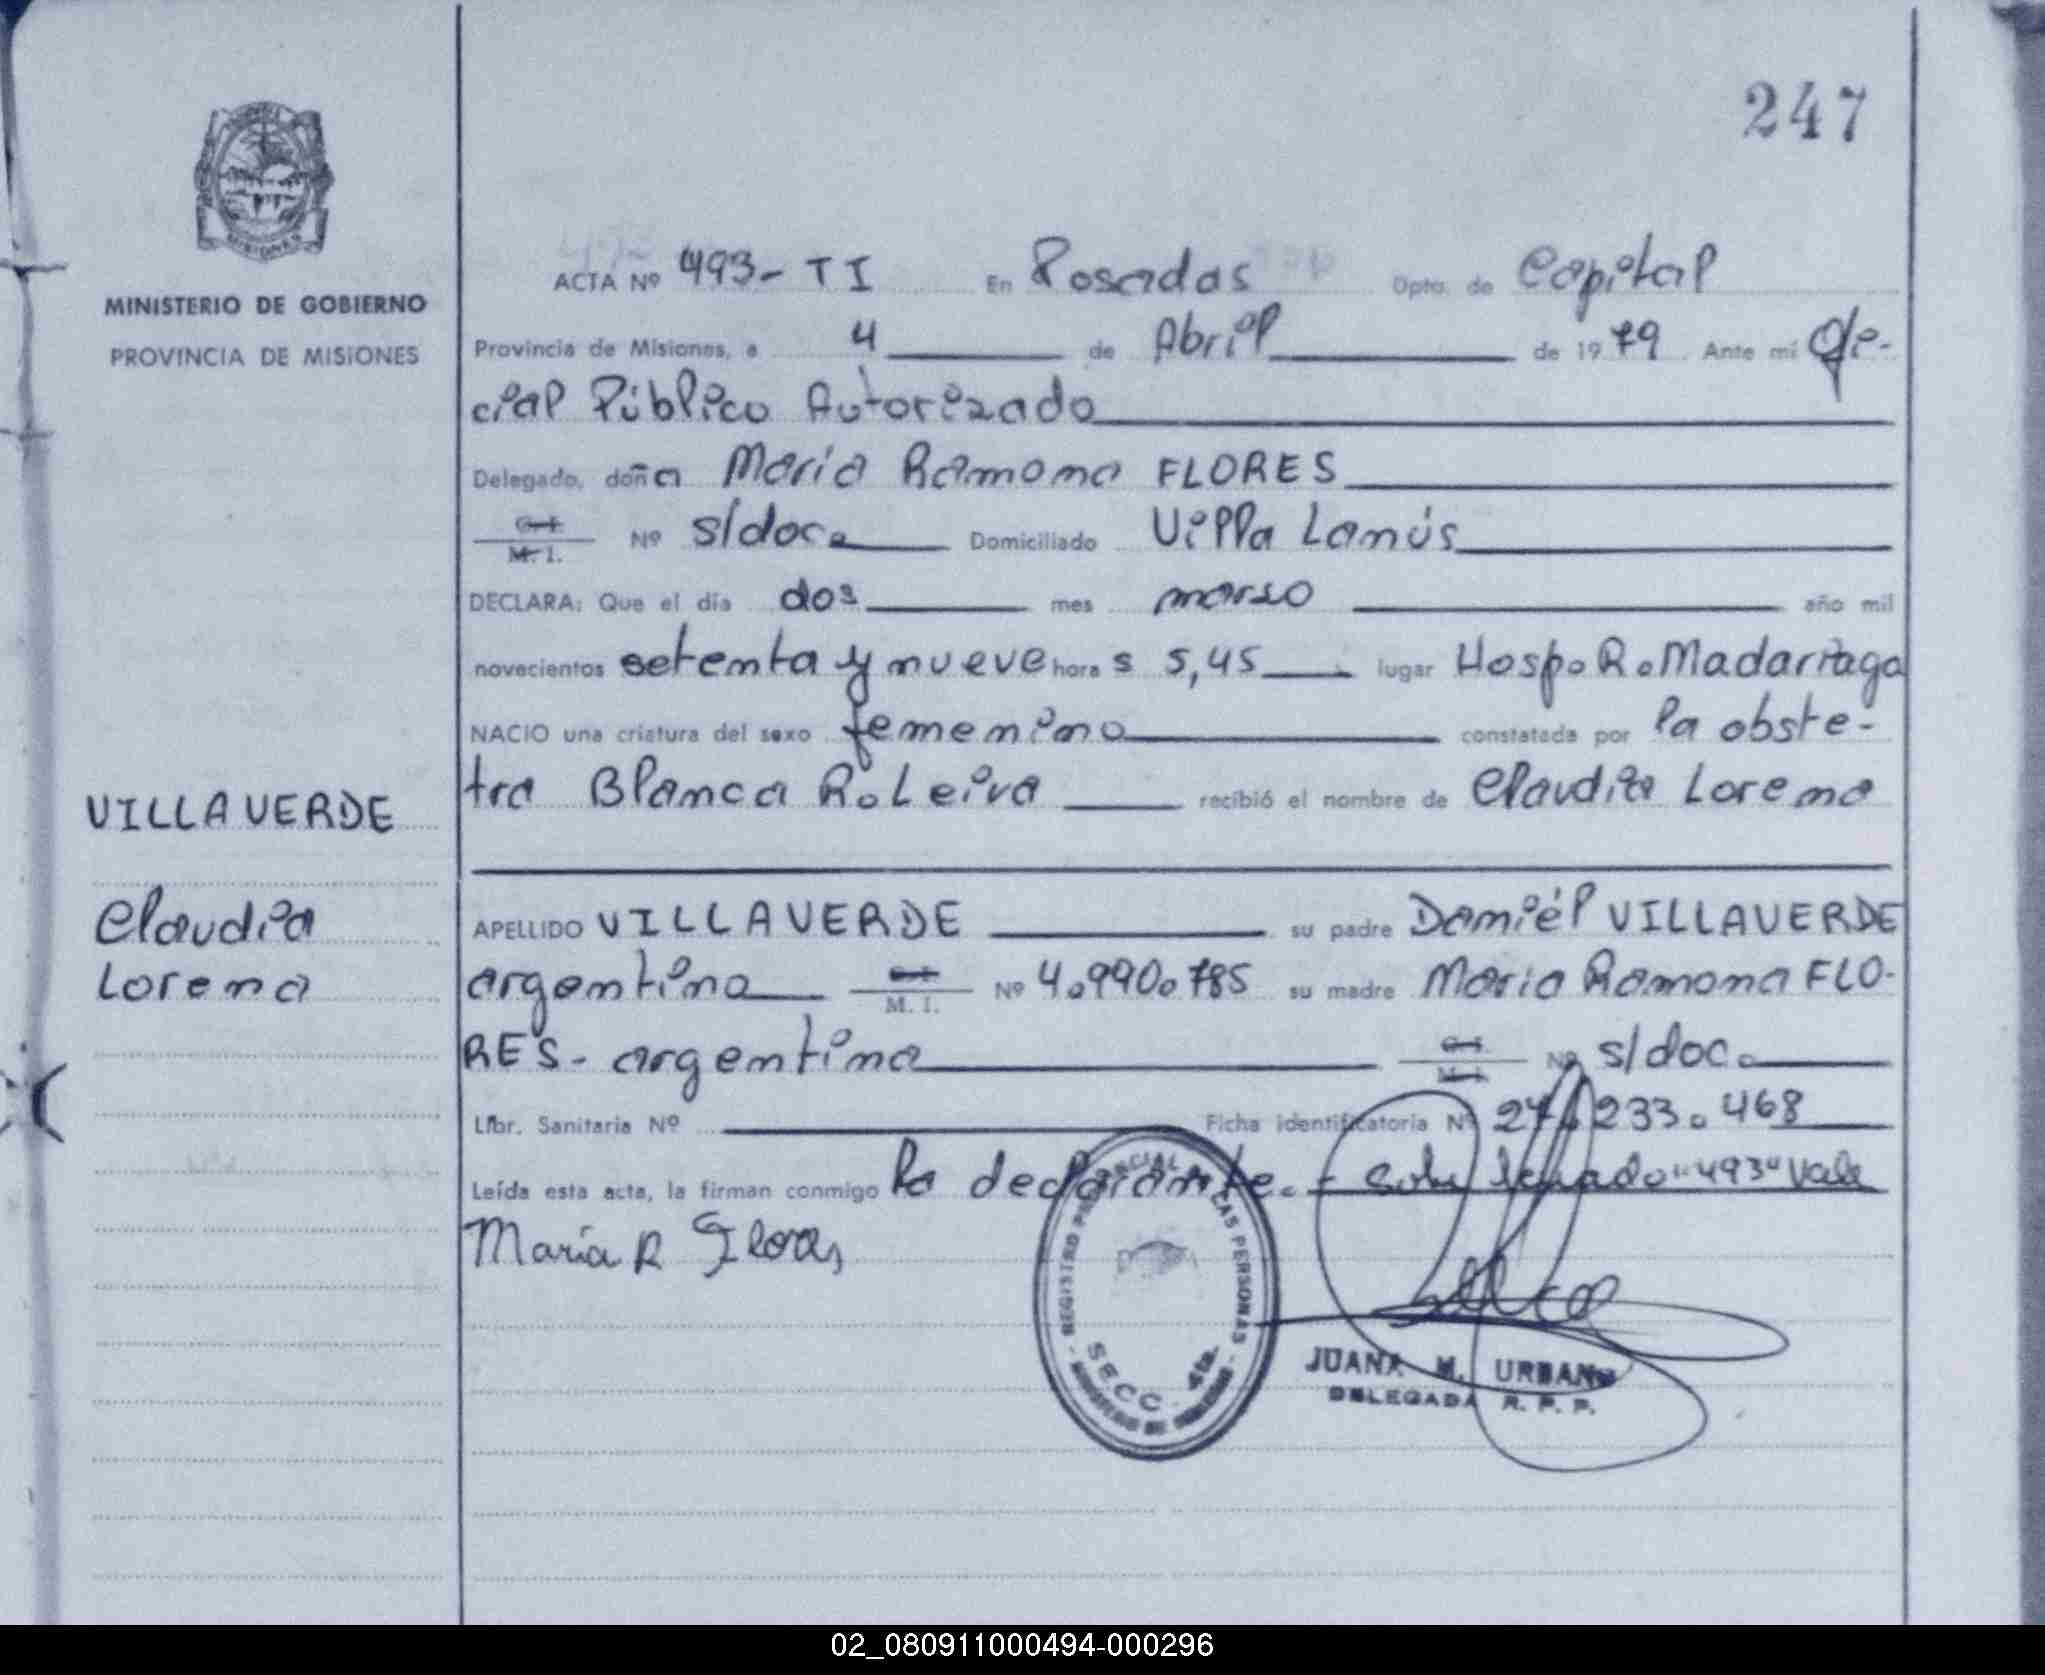 247
MINISTERIO DE GOBIERNO
PROVINCIA DE MISIONES
ACTA Nº 493- TI En Posadas Dpto. de Capital
Provincia de Misiones, a 4 de Abril de 1979 Ante mí Ofi-
cial Público Autorizado
Delegado, doña Maria Ramona FLORES
C. I. M. I. Nº s/doc. Domiciliado Villa Lanús
DECLARA: Que el día dos mes marso año mil
novecientos setenta y nueve horas 5,45 lugar Hosp. R. Madariaga
NACIO una criatura del sexo femenino constatada por la obste-
tra Blanca R. Leiva recibió el nombre de Claudia Lorena
VILLAVERDE
Claudia
Lorena
APELLIDO VILLAVERDE su padre Daniél VILLAVERDE
argentino C. I. M. I. Nº 4.990.785 su madre Maria Ramona FLO-
RES- argentina C. I. M. I. Nº s/doc.
Libr. Sanitaria Nº Ficha identificatoria Nº 27.233.468
Leída esta acta, la firman conmigo la declarante.- "493" Vale
María R Flores
REGISTRO PROVINCIAL DE LAS PERSONAS
SECC. 4ta.
MINISTERIO DE GOBIERNO
JUANA M. URBANO
DELEGADA R. P. P.
02_080911000494-000296